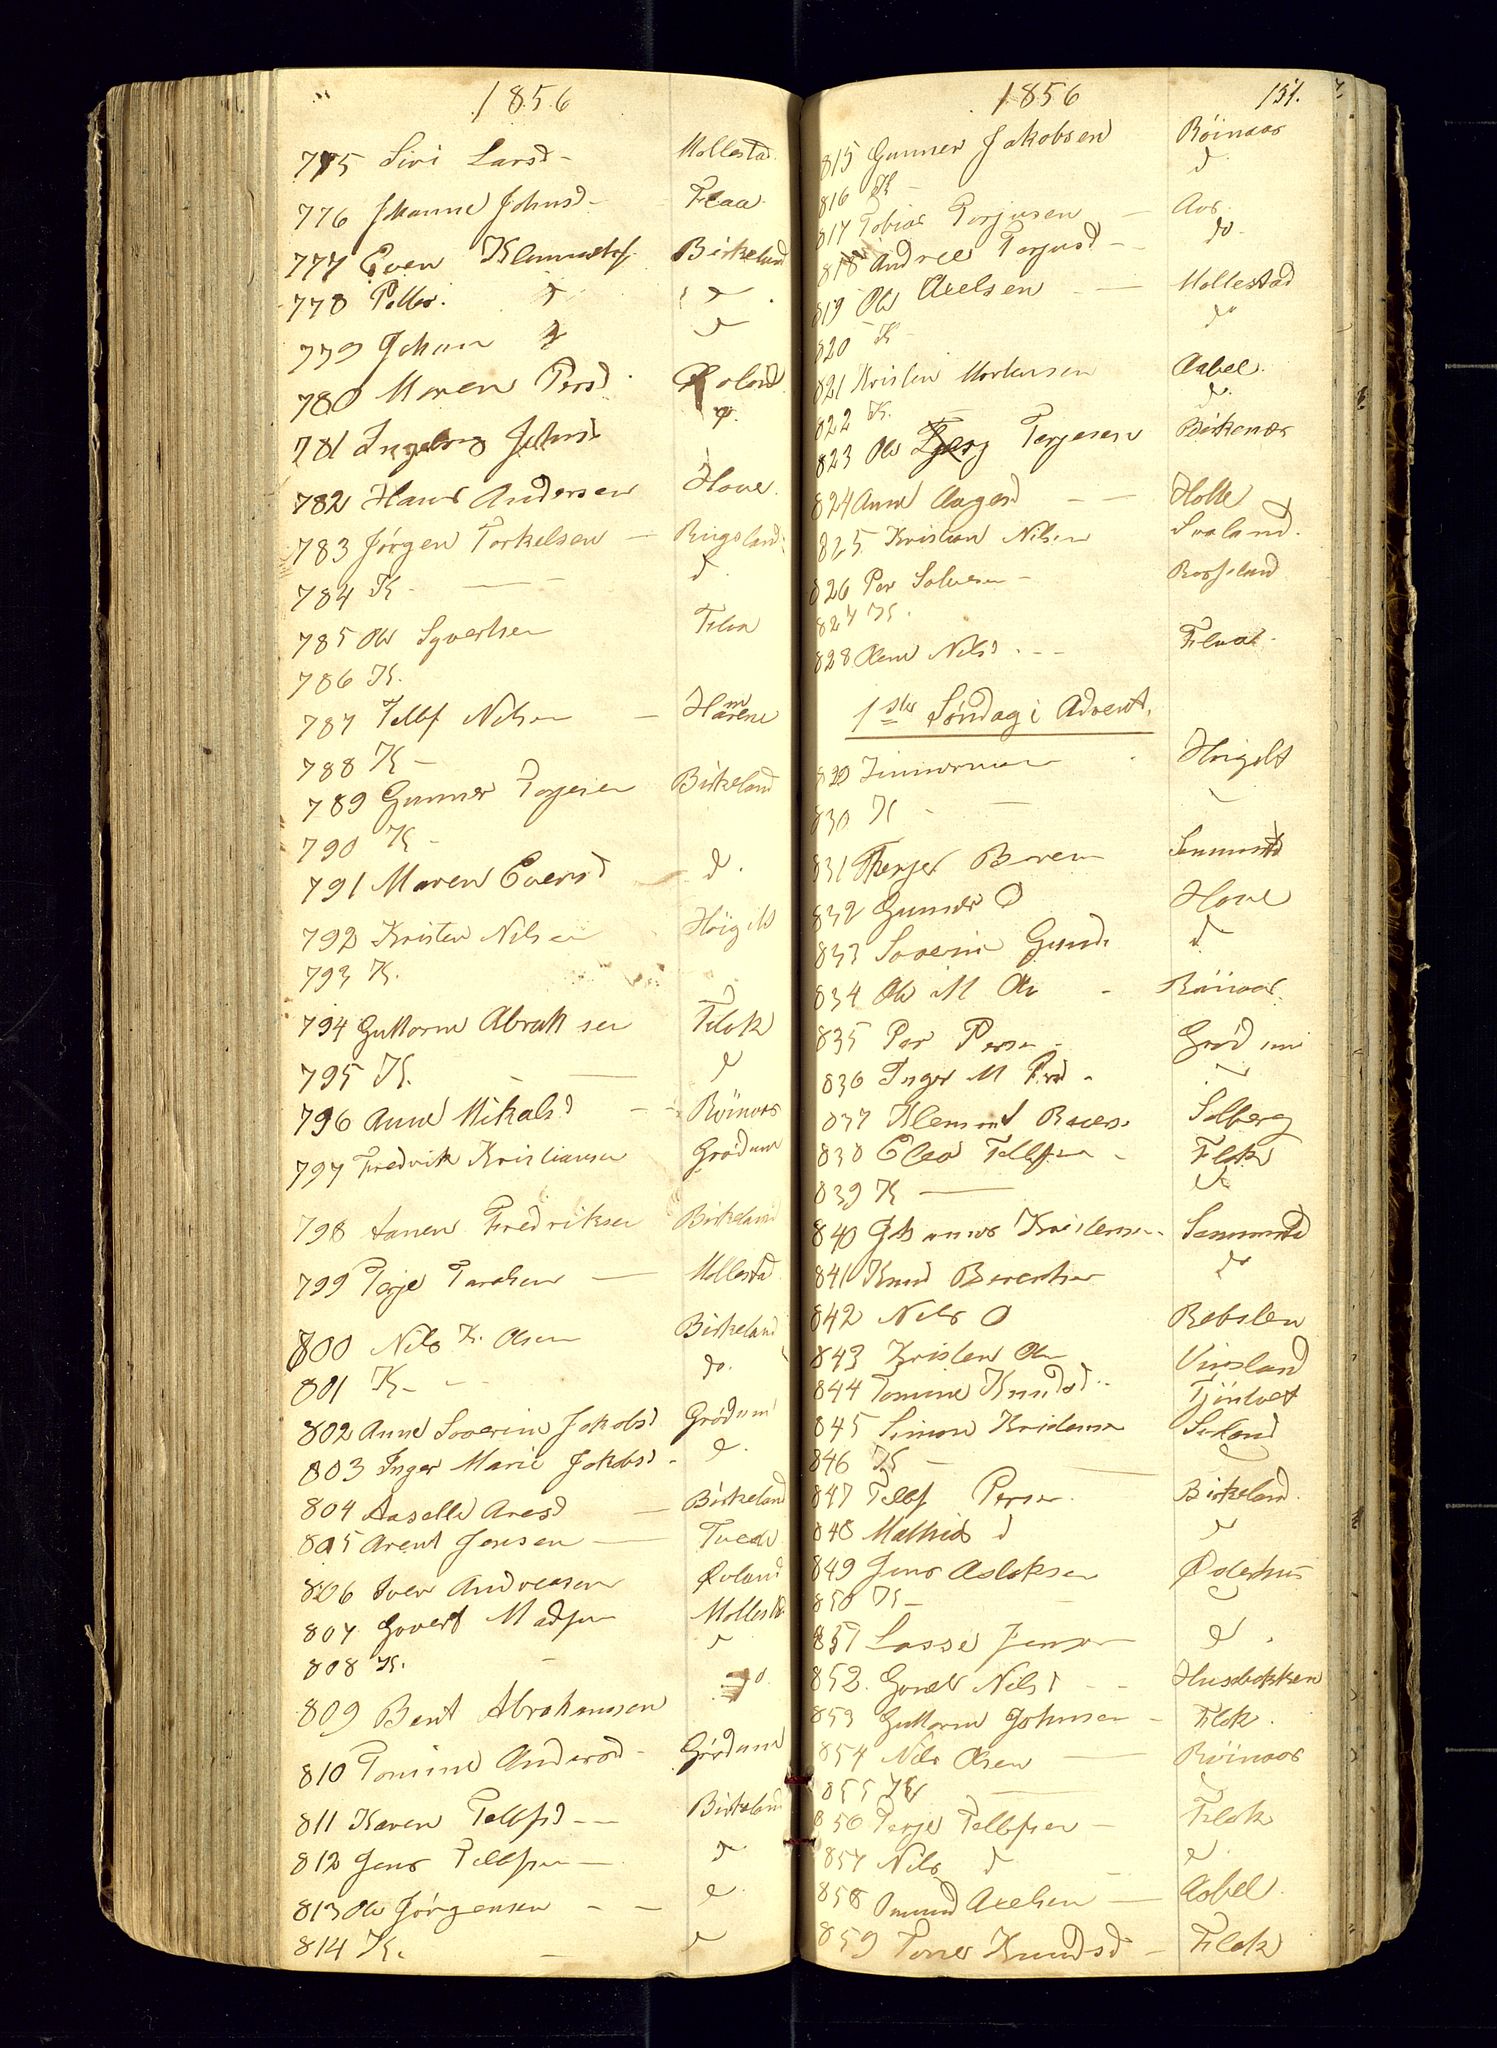 1856
775 Siri Larsd - Mollestad
776 Johanne Johnsd - Flaa
777 Even Klemmetsf Birkeland
778 Pelle. d d
779 Johan d d
780 Maren Persd
781 Ingeborg Johnsd d
782 Hans Andersen Hove
783 Jørgen Torkelsen - Rugsland
784 K. - d
785 Ole Syvertsen
786 K.
787 Tellf Nilsen - Hamrene
788 K -
789 Gunner Torjesen Birkeland
790 K -
791 Maren Evensd d.
792 Kristen Nilsen Høigilt
793 K.
794 Guttorm Abrah sen Flak
795 K. - d
796 Anne Mikalsd - - Røinaas
797 Fredrik Kristiansen Grødum
798 Aanen Fredriksen Birkeland
799 Terje Taraldsen - Mollestad
800 Nils K. Olsen Birkeland
801 K - - do.
802 Anne Severine Jakobsd Grødum
803 Inger Marie Jakobsd - d.
804 Aaselle Aresd - Birkeland
805 Arent Jensen - Tvede
806 Iver Andreasen Øvland
807 Govert Madsen Mollestd
808 K. - d
809 Bent Abrahamsen do
810 Tomine Andersd - Grødum
811 Karen Tellfsd - - Birkeland
812 Jens Tellfsen - d
813 Ole Jørgensen - - d
814 K. - d
1856 151.
815 Gunner Jakobsen Røinaas
816 K - d
817 Tobias Torjusen - Aas.
818 Andrea Torjusd - - do
819 Ole Axelsen - Mollestad
820 K - do
821 Kristen Mortensen Aabel.
822 K. d.
823 Ole Torjesen Birkenæs
824 Anne Aagesd - - Holte
825 Kristian Nilsen Svaland.
826 Per Salvesen - Rosseland
827 K.
828 Olene Nilsd - - -
1ste Søndag i Advent.
829 Høigilt
830 K - -
831 Terjer Boren Senumstd
832 Gunder O Hove
833 Severine Gunds d
834 Ole M Ols - Røinaas
835 Per Persen - Grødum
836 Inger M Persd -
837 Klemmet Solberg
838 Elev Tellfsen - Flak
839 K - d
840 Johannes Kristensen - Senumstd
841 Knud Berentsen do
842 Nils O
843 Kristen Ols Vinsland
844 Tomine Knudsd - Tjøntvet
845 Simon Kristensen
846 K - -
847 Tellf Persen Birkeland.
848 Mathias d d
849 Jens Aslaksen Østerhus
850 K - -
851 Lasse Jensen d.
852. Nilsd - - Husebakken
853 Guttorm Johnsen - Flak.
854 Nils Olsen - Røinaas
855 K -
856 Terje Tellfsen - Flak
857 Nils d - d
858 Omund Axelsen - Aabel
859 Tone Knudsd - Flak